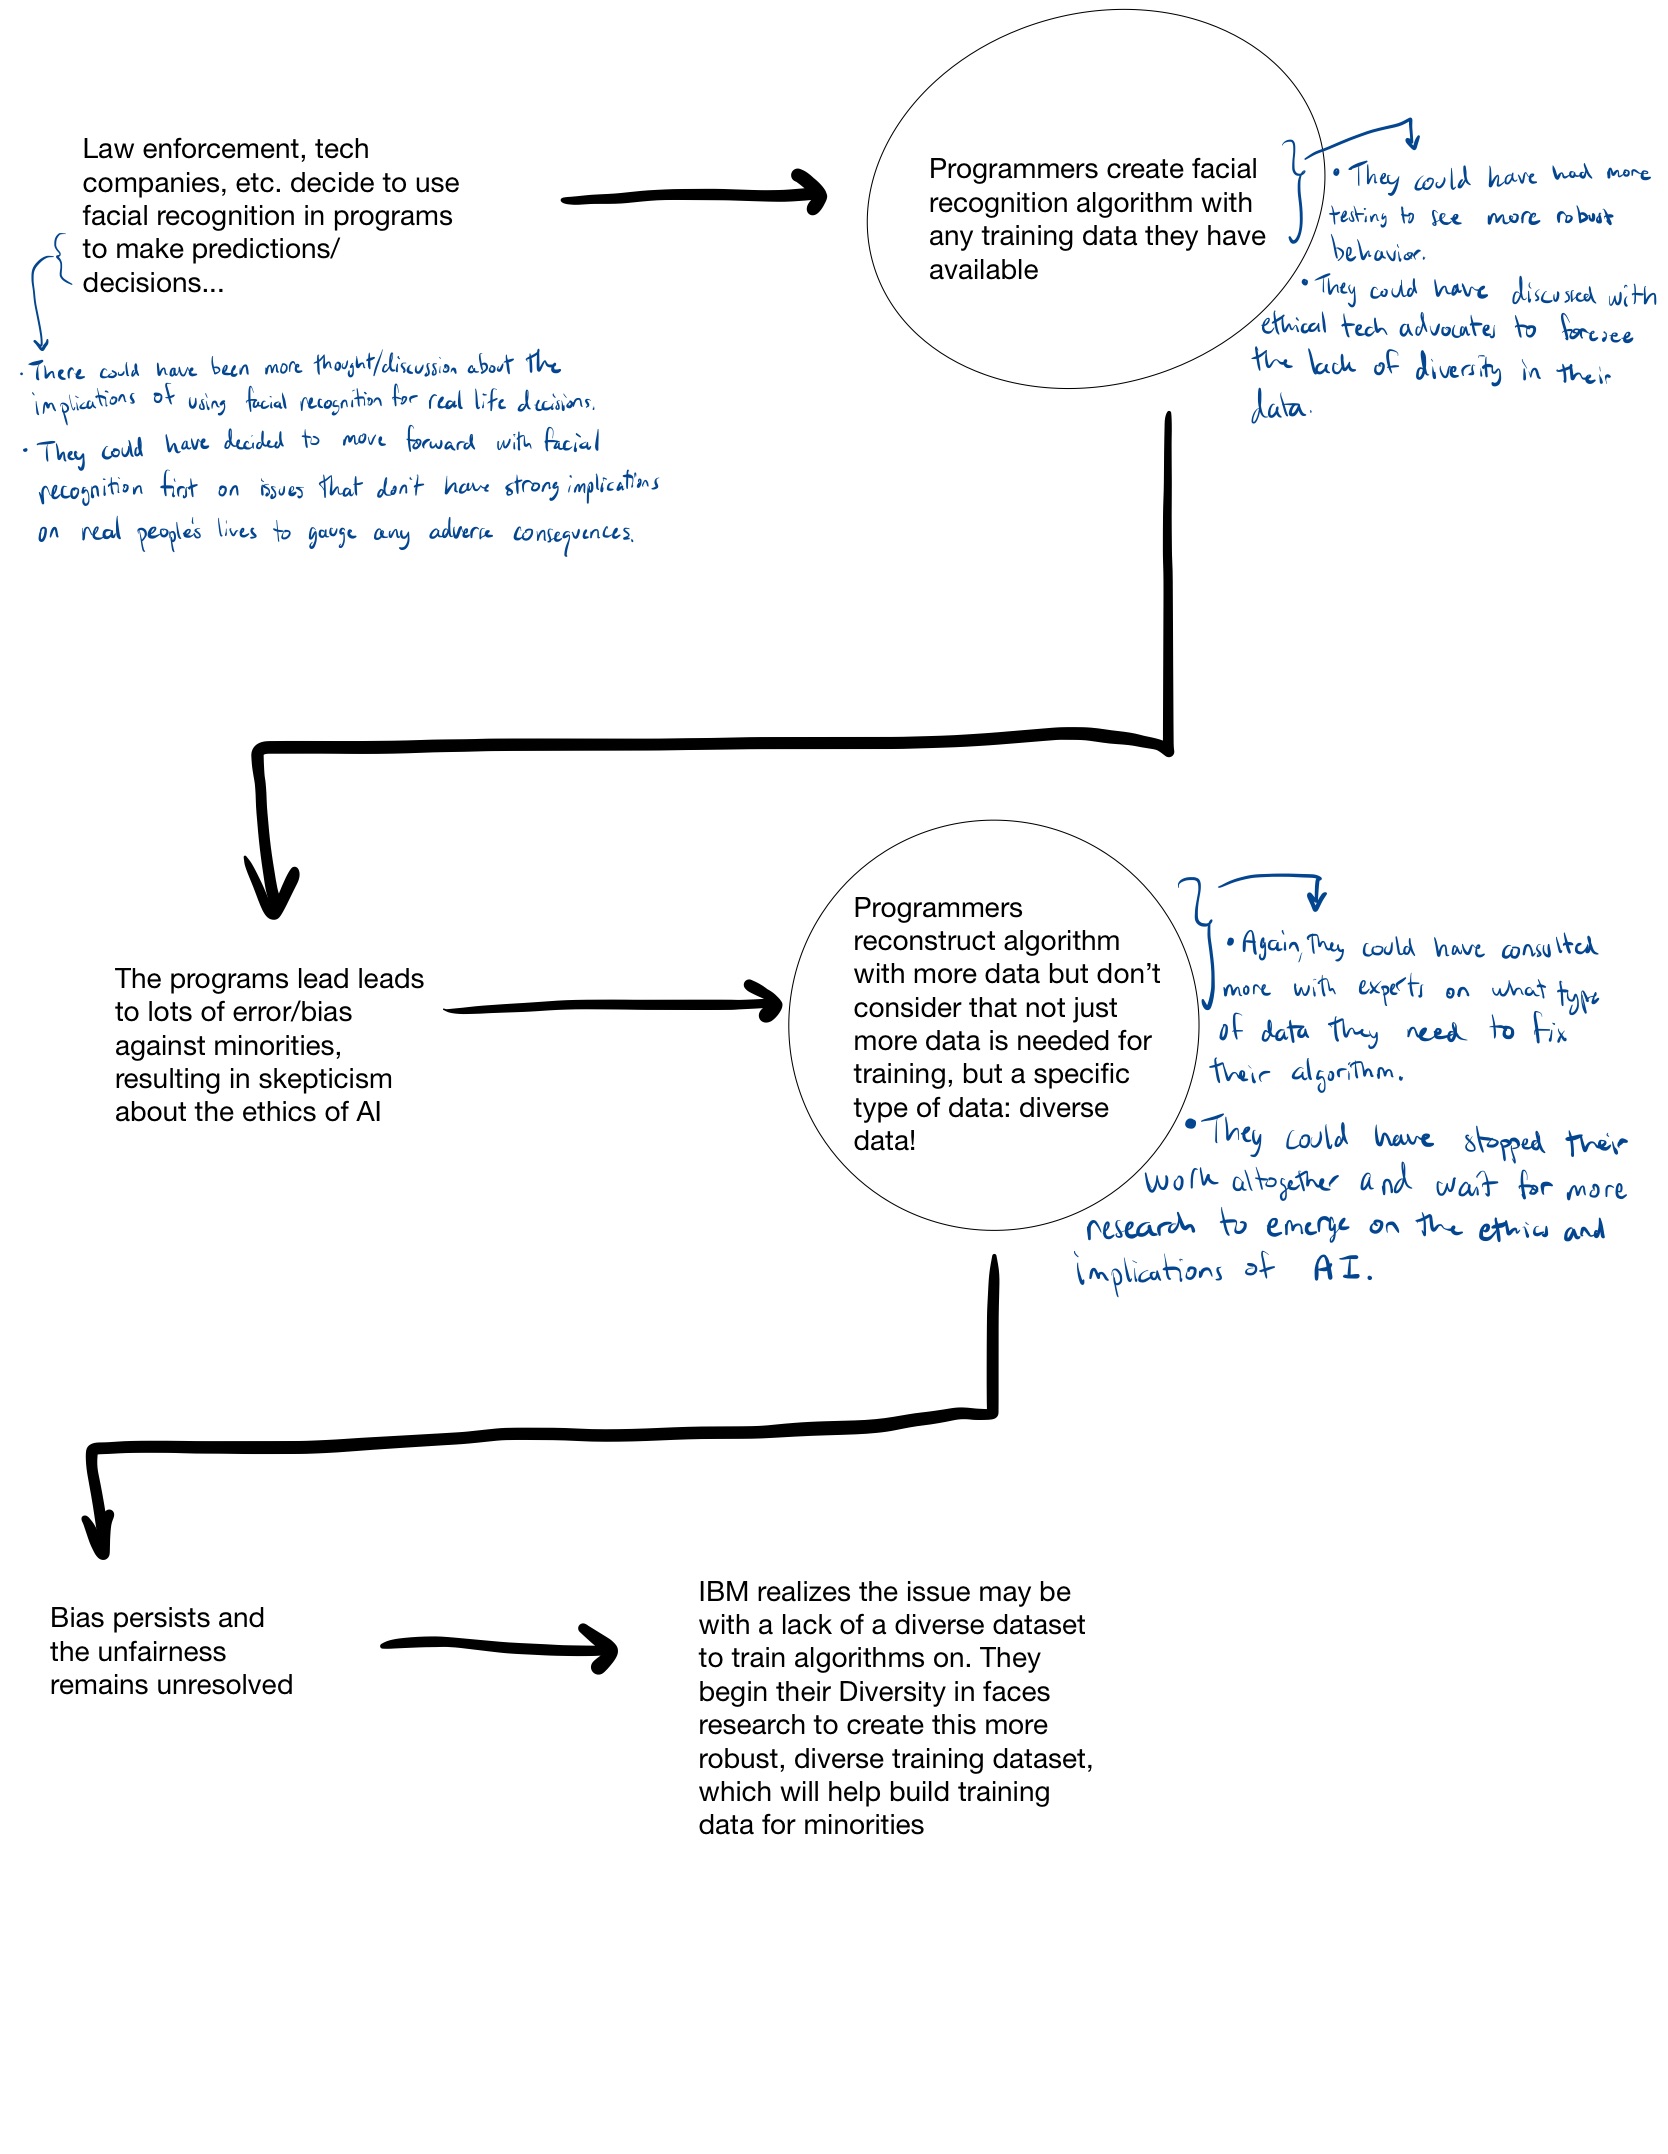 Law enforcement, tech
companies, etc. decide to use
facial recognition in programs
to make predictions/
decisions...
• There could have been more thought/discussion about the
implications of using facial recognition for real life decisions.
• They could have decided to move forward with facial
recognition first on issues that don't have strong implications
on real people's lives to gauge any adverse consequences.
Programmers create facial
recognition algorithm with
any training data they have
available
• They could have had more
testing to see more robust
behavior.
• They could have discussed with
ethical tech advocates to foresee
the lack of diversity in their
data.
The programs lead leads
to lots of error/bias
against minorities,
resulting in skepticism
about the ethics of AI
Programmers
reconstruct algorithm
with more data but don’t
consider that not just
more data is needed for
training, but a specific
type of data: diverse
data!
• Again, they could have consulted
more with experts on what type
of data they need to fix
their algorithm.
• They could have stopped their
work altogether and wait for more
research to emerge on the ethics and
implications of AI.
Bias persists and
the unfairness
remains unresolved
IBM realizes the issue may be
with a lack of a diverse dataset
to train algorithms on. They
begin their Diversity in faces
research to create this more
robust, diverse training dataset,
which will help build training
data for minorities